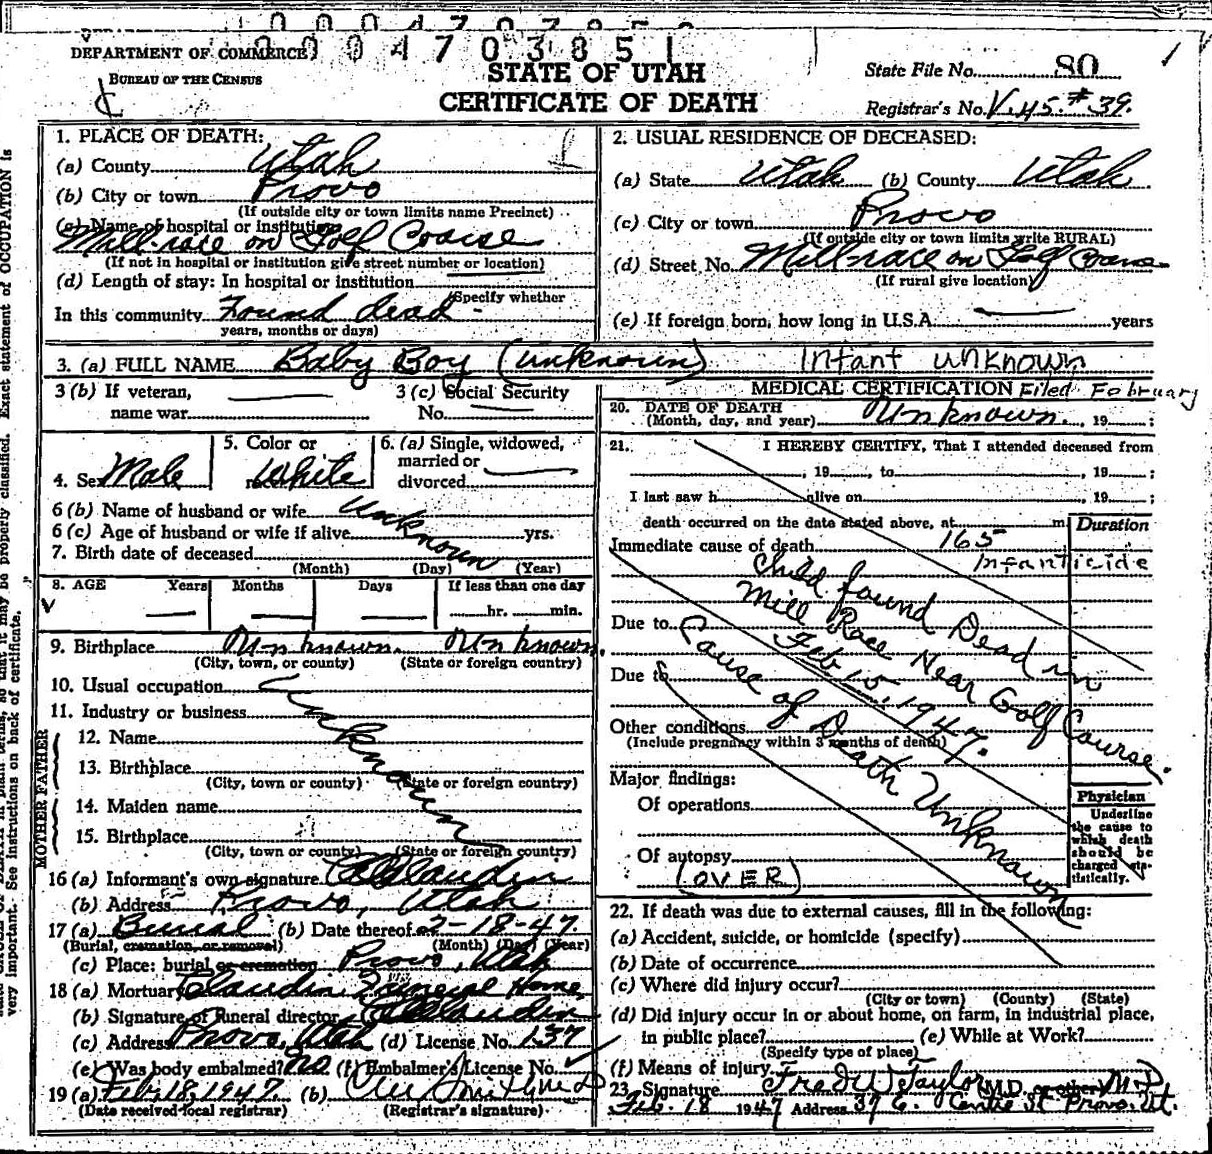 0004703851
DEPARTMENT OF COMMERCE
BUREAU OF THE CENSUS
STATE OF UTAH
CERTIFICATE OF DEATH
State File No. 80
Registrar's No. V.45 #39.
1. PLACE OF DEATH:
(a) County Utah
(b) City or town Provo
(If outside city or town limits name Precinct)
(c) Name of hospital or institution
Mill-race on Golf Coarse
(If not in hospital or institution give street number or location)
(d) Length of stay: In hospital or institution
(Specify whether
In this community Found dead -
years, months or days)
2. USUAL RESIDENCE OF DECEASED:
(a) State Utah (b) County Utah
(c) City or town Provo
(If outside city or town limits write RURAL)
(d) Street No. Mill-race on Golf Coarse
(If rural give location)
(e) If foreign born, how long in U.S.A. years
3. (a) FULL NAME Baby Boy (unknown) Infant unknown
3 (b) If veteran,
name war
3 (c) Social Security
No.
4. Sex Male
5. Color or
race White
6. (a) Single, widowed,
married or
divorced
6 (b) Name of husband or wife
6 (c) Age of husband or wife if alive yrs.
7. Birth date of deceased
Unknown
(Month) (Day) (Year)
8. AGE Years Months Days If less than one day
hr. min.
9. Birthplace Unknown. Unknown.
(City, town, or county) (State or foreign country)
10. Usual occupation
11. Industry or business
FATHER
12. Name
13. Birthplace
(City, town or county) (State or foreign country)
MOTHER
14. Maiden name
15. Birthplace
(City, town or county) (State or foreign country)
Unknown
16 (a) Informant's own signature
(b) Address Provo, Utah
17 (a) Burial (b) Date thereof 2-18-47
(Burial, cremation, or removal) (Month) (Day) (Year)
(c) Place: burial or cremation Provo, Utah
18 (a) Mortuary Claudin Funeral Home
(b) Signature of Funeral director
(c) Address Provo, Utah (d) License No. 137
(e) Was body embalmed? No (f) Embalmer's License No.
19 (a) Feb. 18, 1947. (b)
(Date received local registrar) (Registrar's signature)
MEDICAL CERTIFICATION Filed February
20. DATE OF DEATH
(Month, day, and year) Unknown. , 19 ;
21. I HEREBY CERTIFY, That I attended deceased from
, 19 , to , 19 ;
I last saw h alive on , 19 ;
death occurred on the date stated above, at m.
Duration
Immediate cause of death 165
Infanticide
Child found Dead in
Mill Race Near Golf Course.
Feb 15, 1947.
Cause of Death Unknown
Due to
Due to
Other conditions
(Include pregnancy within 3 months of death)
Major findings:
Of operations
Of autopsy
(OVER)
Physician
Underline
the cause to
which death
should be
charged sta-
tistically.
22. If death was due to external causes, fill in the following:
(a) Accident, suicide, or homicide (specify)
(b) Date of occurrence
(c) Where did injury occur?
(City or town) (County) (State)
(d) Did injury occur in or about home, on farm, in industrial place,
in public place? (e) While at Work?
(Specify type of place)
(f) Means of injury
23. Signature Fred W Taylor M.D. or other M.D.
Feb. 18 1947 Address 37 E. Centre St Provo. Ut.
very important. See instructions on back of certificate.
Exact statement of OCCUPATION is